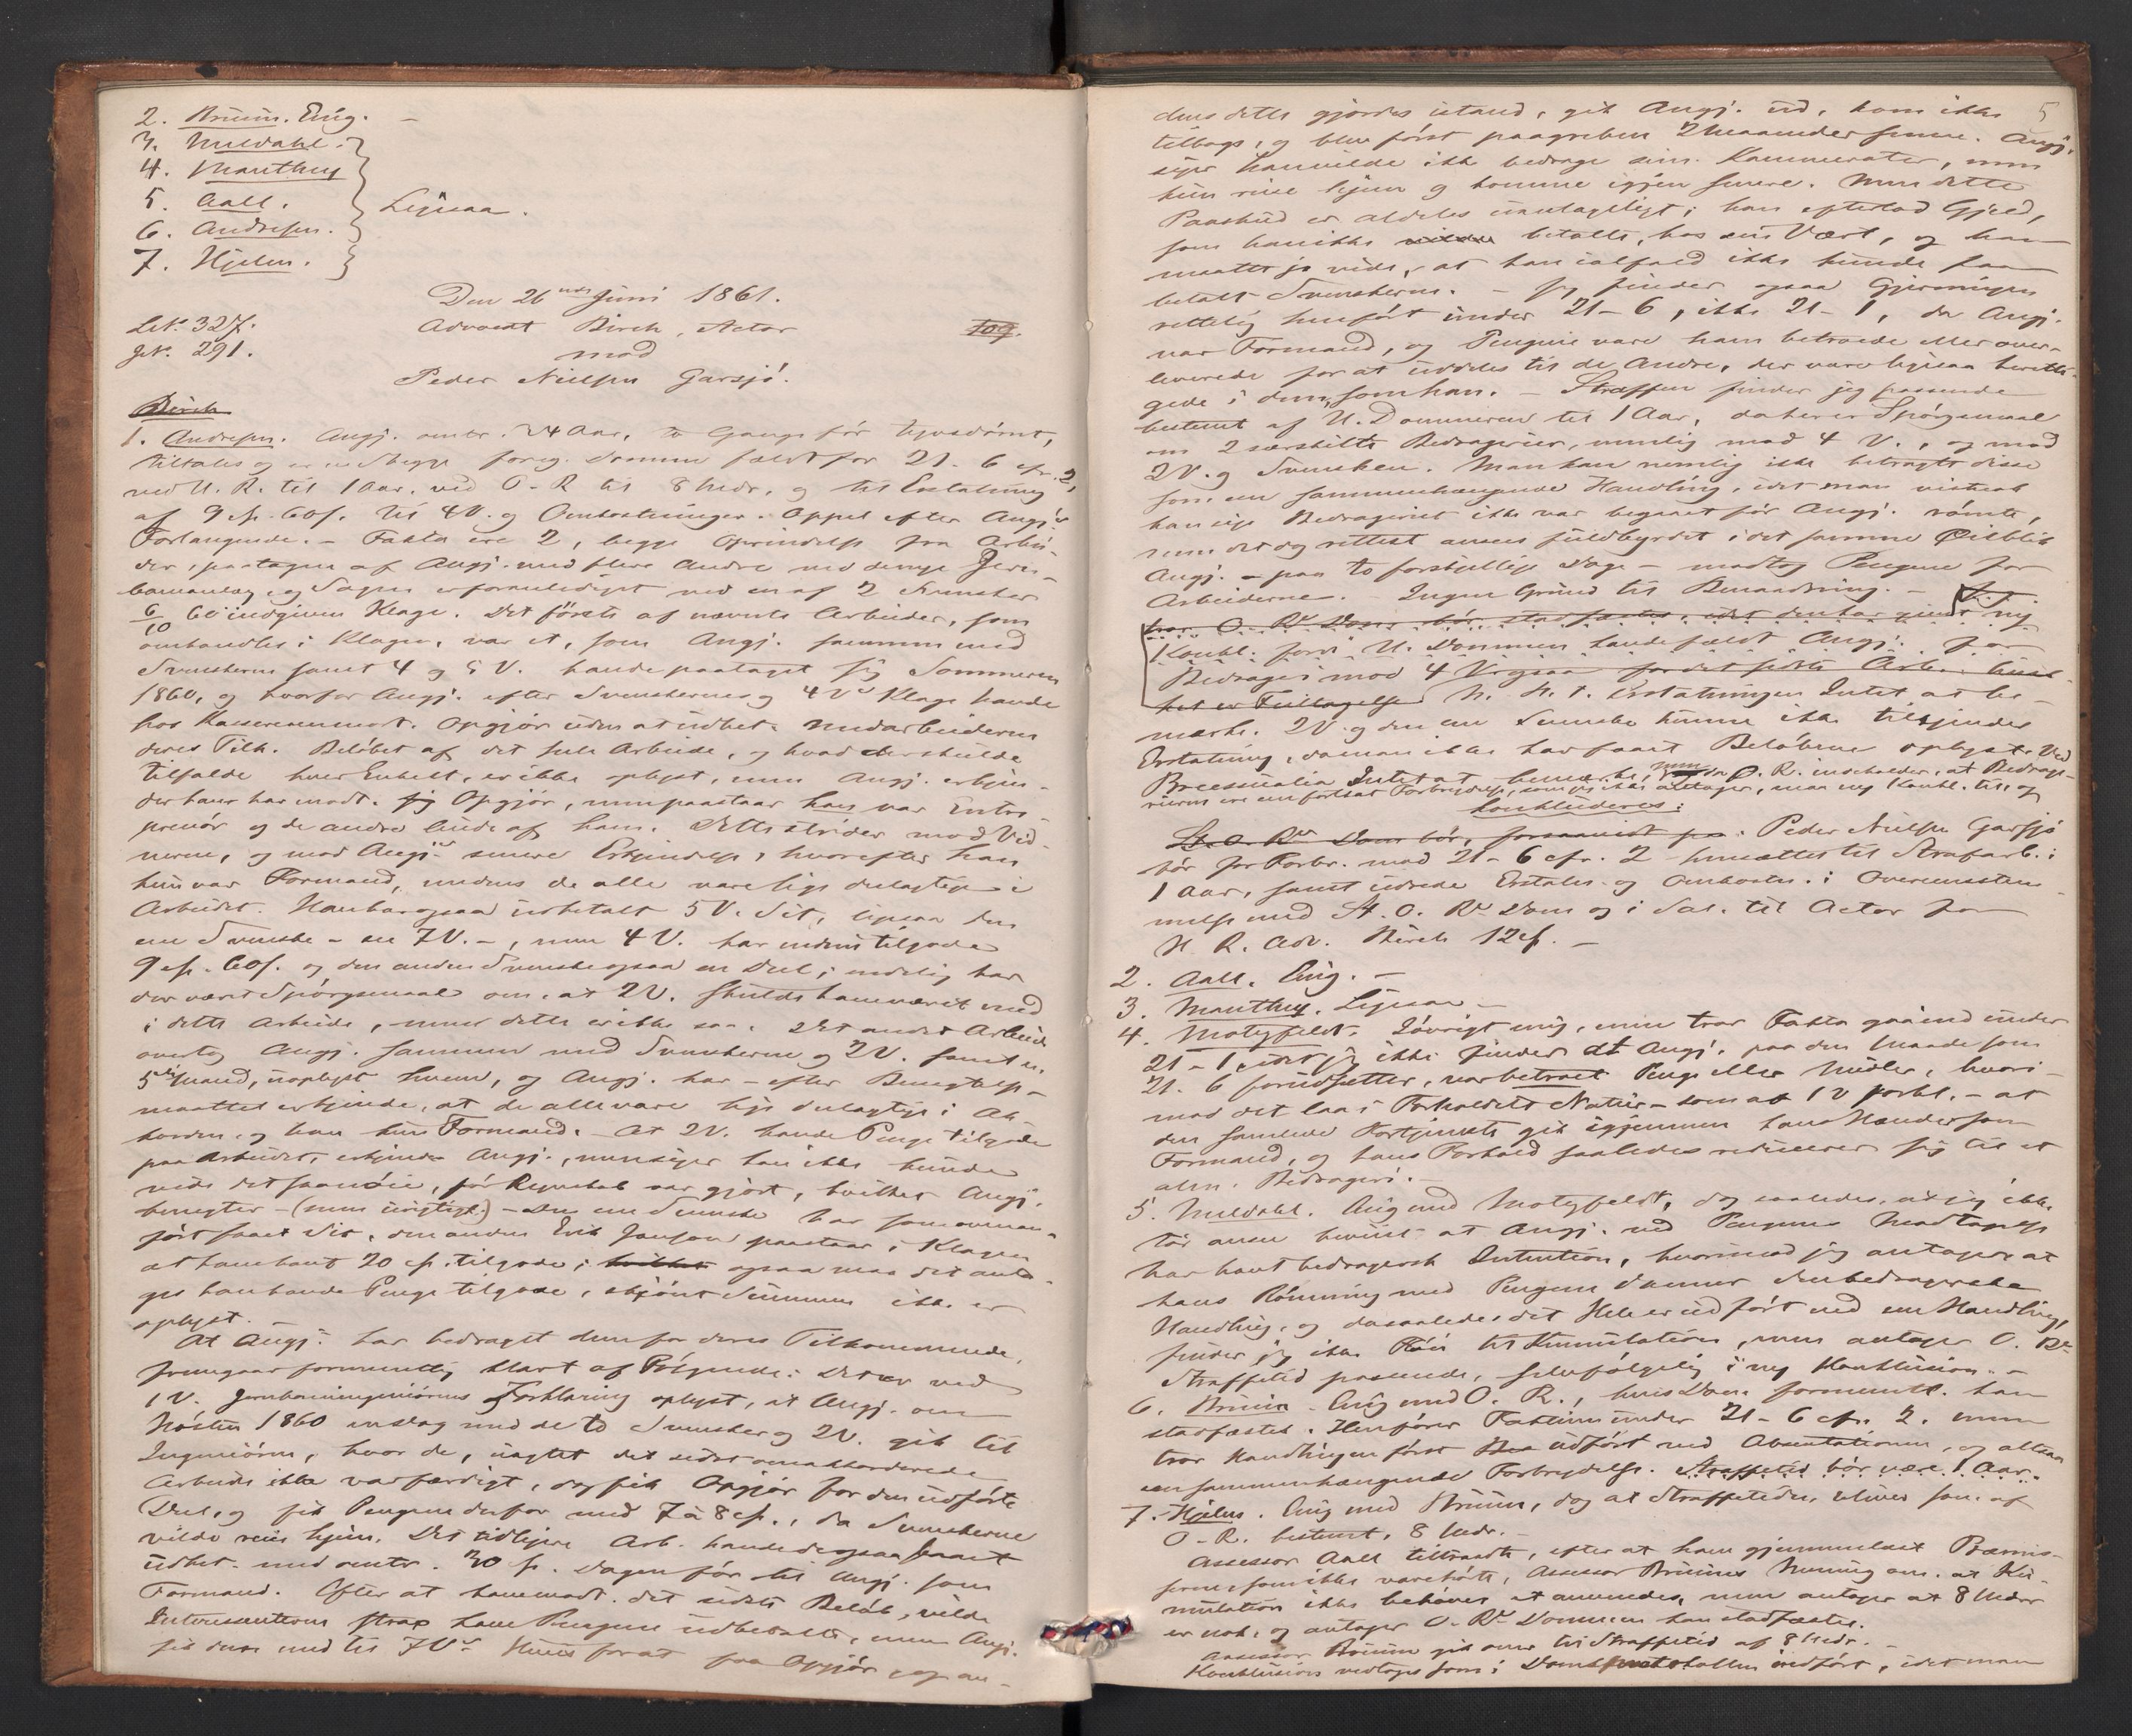 2. Bruun. Enig. –
3. Meldahl.
4. Manthey
5. Aall.
6. Andresen.
7. Hjelm.
Ligesaa.
Den 26de Juni 1861.
Advocat Birch, Actor
mod
Peder Nielsen Garsjö.
L.No. 327.
J.No. 291.
Birch
1. Andresen. Angj. omtr. 24 Aar, to Gange før tyvsdømt,
tiltales og er ved begge foreg. Domme fældt for 21-6 cfr. 2,
ved U. R. til 1 Aar, ved O-R til 8 Mdr. og til Erstatning
af 9 sp. 60 s. til 4 V. og Omkostninger. Appel efter Angj.s
Forlangende. – Fakta ere 2, begge Oprindelse fra Arbei-
der, paatagne af Angj. med flere Andre ved samme Jern-
baneanlæg, og Sagen er foranlediget ved en af 2 Svensker
6/10 60 indgiven Klage. Det første af nævnte Arbeider, som
omhandles i Klagen, var et, som Angj. sammen med
Svenskerne samt 4 og 5 V. havde paataget sig Sommeren
1860, og hvorfor Angj. efter Svenskernes og 4 V.s Klage havde
hos Kassereren modt. Opgjør uden at udbet. Medarbeiderne
deres Tilk. Beløbet af det hele Arbeide, og hvad der skulde
tilfalde hver Enkelt, er ikke oplyst, men Angj. erkjen-
der han har modt. Opgjør, men paastaar han var Entre-
prenör og de andre leiede af ham. Dette strider mod Vid-
nerne, og mod Angj.s senere Erkjendelse, hvorefter han
kun var Formand, medens de alle vare lige deelagtige i
Arbeidet. Han har ogsaa udbetalt 5 V. Sit, ligesaa den
ene Svenske – see 7 V. –, men 4 V. har endnu tilgode
9 sp. 60 s. og den anden Svenske ogsaa en Deel; endelig har
der været Spørgsmaal om, at 2 V. skulde have været med
i dette Arbeide, men dette er ikke saa. Det andet Arbeide
overtog Angj. sammen med Svenskerne og 2 V. samt en
5te Mand, uoplyst hvem, og Angj. har – efter Benegtelse –
maattet erkjende, at de alle vare lige deelagtige i Ak-
korden, og han kun Formand. – At 2 V. havde Penge tilgode
paa Arbeidet, erkjender Angj., men siger han ikke kunde
vide det saa nöie, før Regnskab var gjort, hvilket Angj.
benegter – (men urigtigt) – Den ene Svenske har som oven an-
ført faaet Sit, den anden Erik Jonsson paastaar i Klagen
at have havt 20 sp. tilgode; ogsaa maa det anta-
ges han havde Penge tilgode, skjönt Summen ikke er
oplyst. –
At Angj. har bedraget dem for deres Tilkommende,
fremgaar formentlig klart af Følgende: Det er ved
1 V. Jernbaneingeniörens Forklaring oplyst, at Angj. om
Hösten 1860 en Dag med de to Svensker og 2 V. gik til
Ingeniören, hvor de, uagtet det sidst omakkorderede
Arbeide ikke var færdigt, dog fik Opgjør for den udførte
Deel, og fik Pengene derfor med 7 à 8 sp., da Svenskerne
vilde reise hjem. Det tidligere Arb. havde de ogsaa faaet
udbet. med omtr. 30 sp. Dagen før til Angj. som
Formand. Efter at have modt. det sidste Beløb, vilde
Interessenterne strax have Pengene udbetalte, men Angj.
fik dem med til 7 V.s Huus for at faa Opgjør, og an-
5
dens dette gjordes istand, gik Angj. ud, kom ikke
tilbage, og blev først paagreben 2 Maaneder senere. Angj.
siger han vilde ikke bedrage sine Kammerater, men
kun reise hjem og komme igjen senere. Men dette
Paaskud er aldeles uantageligt; han efterlod Gjeld,
som han ikke betalte, hos sin Vært, og han
maatte jo vide, at han ialfald ikke kunde faa
betalt Svenskerne. – Jeg finder ogsaa Gjerningen
rettelig henført under 21-6, ikke 21-1, da Angj.
var Formand, og Pengene vare ham betroede eller over-
leverede for at uddeles til de Andre, der vare ligesaa beretti-
gede i dem, som han. – Straffen finder jeg passende
bestemt af U. Dommeren til 1 Aar, da her er Spørgsmaal
om 2 særskilte Bedragerier, nemlig mod 4 V., og mod
2 V. og Svensken. Man kan nemlig ikke betragte disse
som en sammenhængende Handling, idet man vistnok
kan sige Bedrageriet ikke var begaaet før Angj. rømte,
men det dog rettest ansees fuldbyrdet i det samme Øieblik
Angj. – paa to forskjellige Dage – modtog Pengene for
Arbeiderne. – Ingen Grund til Benaadning. –
O. Rs Dom bør stadfæstes, idet den har
Konkl. fordi U. Dommen havde fældt Angj. for
Bedrageri mod 4 V. ogsaa for det sidste Arb.
ket er Feiltagelse. M. H. t. Erstatningen Intet at be-
mærke. 2 V. og den ene Svenske kunne ikke tilkjendes
Erstatning, da man ikke har faaet Beløbene oplyst. Ved
Processualia Intet at bemærke, men da O. R. indeholder, at Bedrage-
rierne ere en fortsat Forbrydelse, som jeg ikke antager, maa ny Konkl. til, og
konkluderes:
St. O. Rs Dom bør, forsaavidt p. Peder Nielsen Garsjö
bør for Forbr. mod 21-6 cfr. 2 hensættes til Strafarb. i
1 Aar, samt udrede Erstatn. og Omkostn. i Overensstem-
melse med St. O. Rs Dom og i Sal. til Actor for
H. R. Adv. Birch 12 sp. –
2. Aall. Enig. –
3. Manthey. Ligesaa –
4. Motzfeldt. Iøvrigt enig, men tror Fakta gaa ind under
21-1, idet jeg ikke finder at Angj. paa den Maade som
21-6 forudsetter, var betroet Penge eller Midler, hvori-
mod det laa i Forholdets Natur – som af 1 V forkl. – at
den samlede Fortjeneste gik igjennem hans Hænder som
Formand, og hans Forhold saaledes reducerer sig til et
alm. Bedrageri. –
5. Meldahl. Enig med Motzfeldt, dog saaledes, at jeg ikke
tör ansee beviist at Angj. ved Pengenes Modtagelse
har havt bedragersk Intention, hvorimod jeg antager at
hans Rømning med Pengene danner den bedragerske
Handling, og da saaledes det Hele er udført ved een Handling,
finder jeg ikke Føie til Kumulation, men antager O. Rs
Straffetid passende, selvfølgelig i ny Konklusion. –
6. Bruun. Enig med O. R., hvis Dom formentl. kan
stadfæstes. Henfører Faktum under 21-6 cfr. 2. men
tror Handlingen først udført ved Absentationen, og altsaa
een sammenhængende Forbrydelse. Straffetid bør være 1 Aar.
7. Hjelm. Enig med Bruun, dog at Straffetiden bliver som af
O-R. bestemt, 8 Mdr. –
Assessor Aall tiltraadte, efter at have gjennemlæst Præmis-
serne, som ikke vare hørte, Assessor Bruuns Mening om, at Ku-
mulation ikke behøver at anvendes, men antager at 8 Mdr
er nok, og antager O. Rs Dommen kan stadfæstes.
Assessor Bruun gik over til Straffetid af 8 Mdr. –
Konklusion vedtoges som i Domsprotokollen indført, idet man